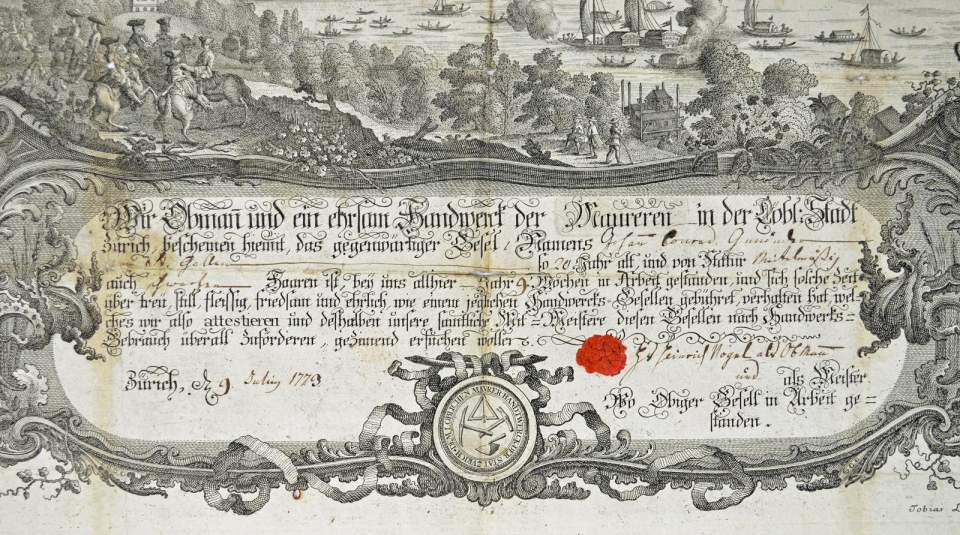 Wir Obman und ein ehrsam Handwerk der Maureren in der Lobl: Stadt
Zürich, bescheinen hiemit, das gegenwärtiger Gesel, Namens Johan Conrad
so 20 Jahr alt, und von Statur Mitelmäßig
auch schwarzen Haaren ist, bey uns allhier Jahr 9 Wochen in Arbeit gestanden, und sich solche Zeit
über treu, still, fleissig, friedsam und ehrlich, wie einem jeglichen Handwerks-Gesellen gebühret, verhalten hat, wel-
ches wir also attestieren und deshalben unsere samtliche Mit-Meistere diesen Gesellen nach Handwerks-
Gebrauch überall zuforderen, gezimend ersuchen wollen.
Heinrich Vogel als Obman
Zürich, d. 9 Julius 1773
und als Meister
Wo Obiger Gesell in Arbeit ge-
standen.
Tobias